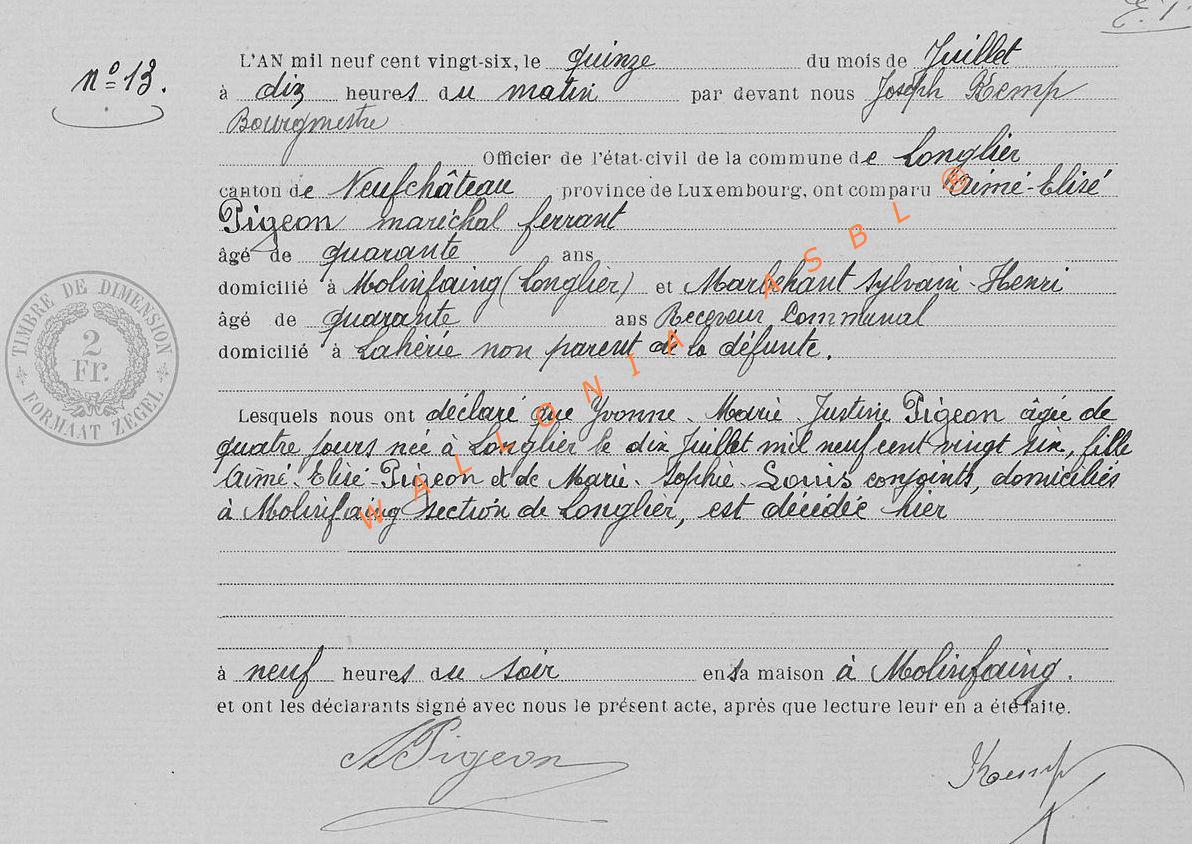 E. P.
nº 13.
L'AN mil neuf cent vingt-six, le quinze du mois de Juillet
à dix heures du matin par devant nous Joseph Kemp
Bourgmestre
Officier de l'état-civil de la commune de Longlier
canton de Neufchâteau province de Luxembourg, ont comparu Aimé-Elisé
Pigeon maréchal ferrant
âgé de quarante ans
domicilié à Molinfaing (Longlier) et Marlehant Sylvain-Henri
âgé de quarante ans Receveur Communal
domicilié à Lahérie non parent de la défunte.
Lesquels nous ont déclaré que Yvonne-Marie-Justine Pigeon âgée de
quatre jours née à Longlier le dix Juillet mil neuf cent vingt six, fille
Aimé-Elisé-Pigeon et de Marie-Sophie-Louis conjoints, domiciliés
à Molinfaing section de Longlier, est décédée hier
à neuf heures du soir en sa maison à Molinfaing.
et ont les déclarants signé avec nous le présent acte, après que lecture leur en a été faite.
A Pigeon
Kemp
TIMBRE DE DIMENSION
2
Fr.
FORMAAT ZEGEL
WALLONIA ASBL ®